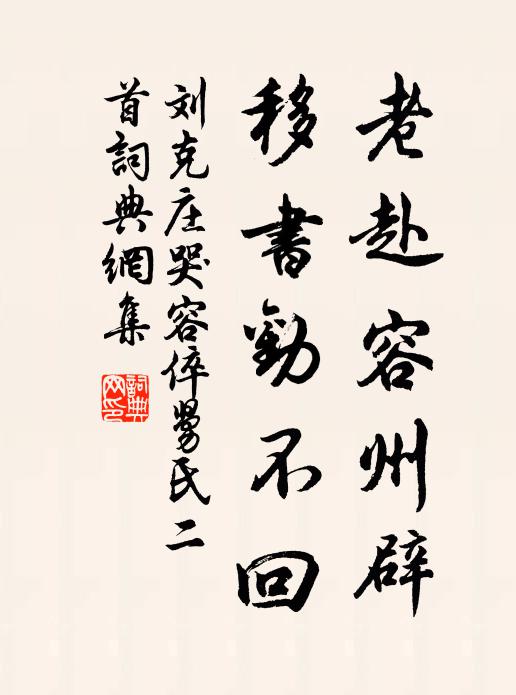 老赴容州辟
移書勸不回
刘克庄哭容倅舅氏二
首詞典網集
詞典
网印